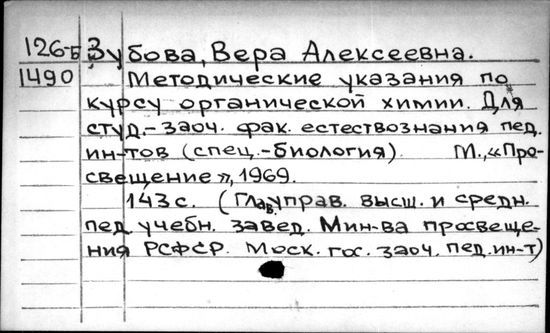 126-Б Зубова, Вера Алексеевна.
1490 Методические указания по
курсу органической химии. Для
студ.-заоч. фак. естествознания пед.
ин-тов (спец.-биология). М., «Про-
свещение», 1969.
143 с. (Глав. управ. высш. и средн.
пед. учебн. завед. Мин-ва просвеще-
ния РСФСР. Моск. гос. заоч. пед. ин-т)